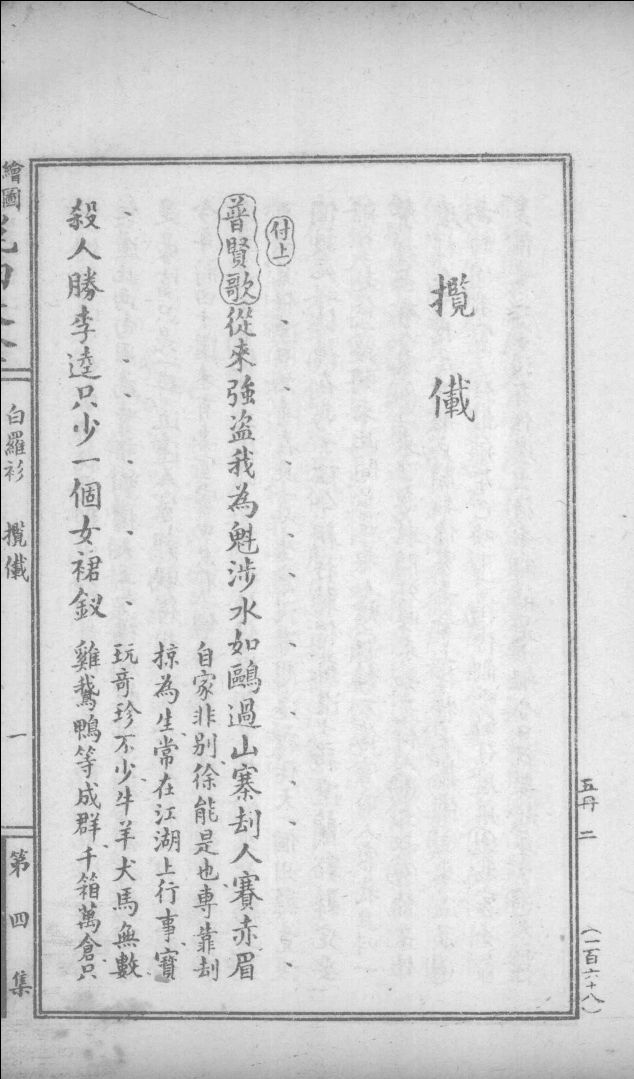 五冊 二
（一百六十八）
攬儎
付上
普賢歌 從來強盗我為魁涉水如鷗過山寨刦人賽赤眉
殺人勝李逵只少一個女裙釵
自家非别徐能是也專靠刦
掠為生常在江湖上行事寶
玩奇珍不少牛羊犬馬無數
雞鵝鴨等成群千箱萬倉只
繪圖
白羅衫 攬儎
一
第四集